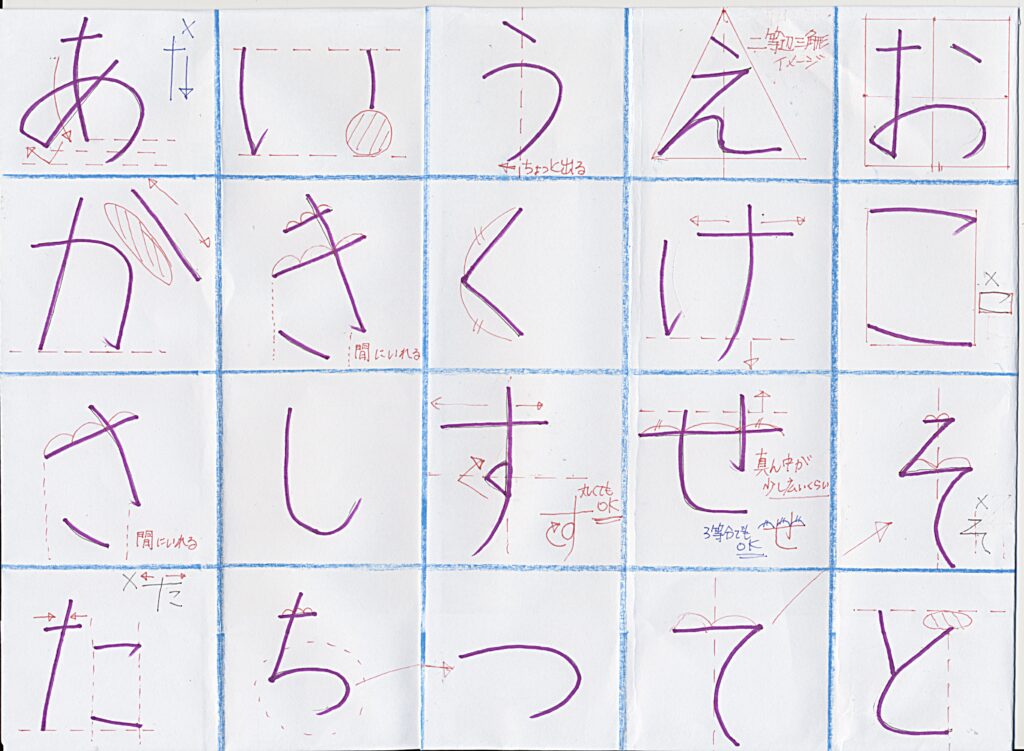 あ
い
う
ちょっと出る
え
二等辺三角形
イメージ
お
か
き
間にいれる
く
け
こ
さ
間にいれる
し
す
丸くても
OK
せ
真ん中が
少し広いくらい
3等分でも
OK
せ
そ
そ
た
た
ち
つ
て
と